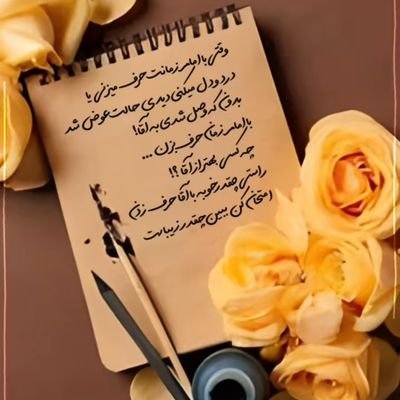 وقتی با امام زمانت حرف میزنی یا
درد و دل میکنی دیدی حالت عوض شد
بدون که وصل شدی به آقا!
با امام زمان حرف بزن ...
چه کسی بهتر از آقا ؟!
راستی چقدر خوبه با آقا حرف زدن
امتحان کن ببین چقدر زیباست